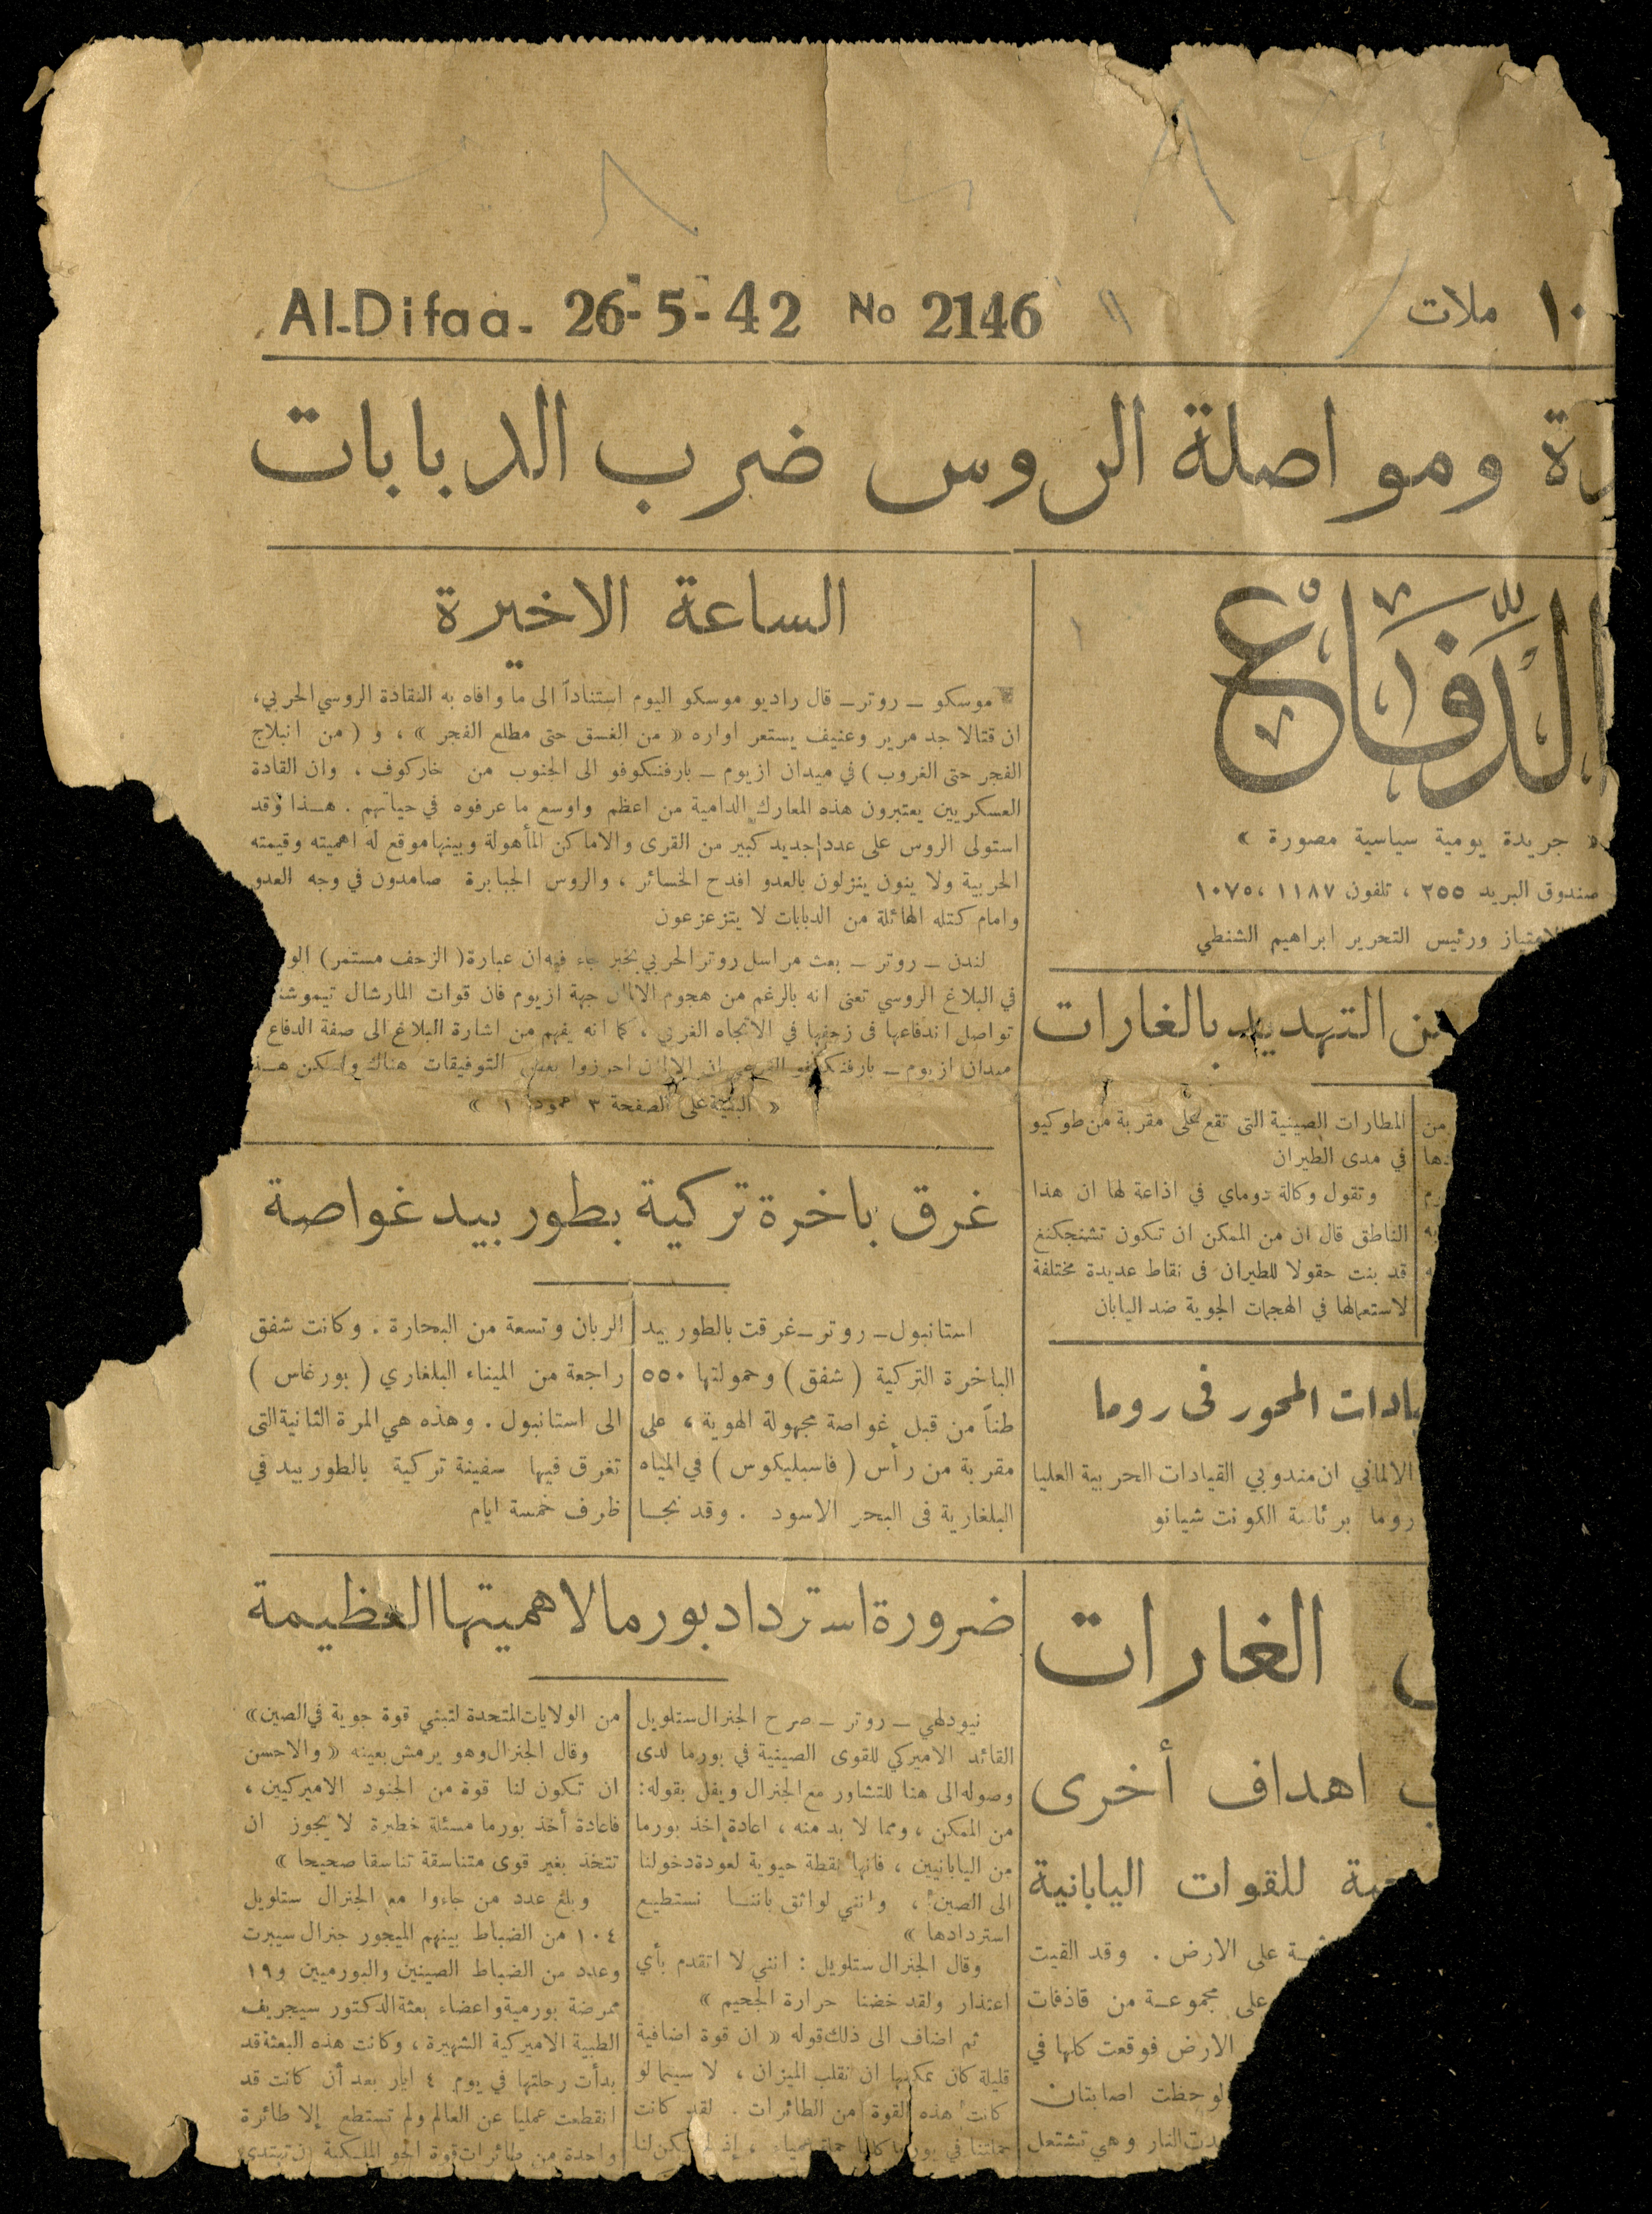 Al-Difaa- 26-5-42 No 2146
١٠ ملات
ومواصلة الروس ضرب الدبابات
الدفاع
« جريدة يومية سياسية مصورة »
صندوق البريد ٢٥٥ ، تلفون ١١٨٧ ،١٠٧٥
الامتياز ورئيس التحرير ابراهيم الشنطي
من التهديد بالغارات
من
المطارات الصينية التى تقع على مقربة من طوكيو
في مدى الطيران
وتقول وكالة دوماي في اذاعة لها ان هذا
الناطق قال ان من الممكن ان تكون تشنجكنغ
قد بنت حقولا للطيران فى نقاط عديدة مختلفة
لاستعمالها في الهجمات الجوية ضد اليابان
المحور فى روما
الالماني ان مندوبي القيادات الحربية العليا
روما برئاسة الكونت شيانو
الغارات
اهداف أخرى
للقوات اليابانية
على الارض . وقد القيت
على مجموعـة من قاذفات
الارض فوقعت كلها في
لوحظت اصابتان
النار وهي تشتعل
الساعة الاخيرة
موسكو — روتر— قال راديو موسكو اليوم استناداً الى ما وافاه به النقادة الروسي الحربي،
ان قتالا جد مرير وعنيف يستعر اواره « من الغسق حتى مطلع الفجر » ، و ( من انبلاج
الفجر حتى الغروب ) في ميدان ازيوم — بارفنكوفو الى الجنوب من خاركوف ، وان القادة
العسكريين يعتبرون هذه المعارك الدامية من اعظم واوسع ما عرفوه في حياتهم . هـذا وقد
استولى الروس على عدد جديد كبير من القرى والاماكن المأهولة وبينها موقع له اهميته وقيمته
الحربية ولا ينون ينزلون بالعدو افدح الخسائر ، والروس الجبابرة صامدون في وجه العدو
وامام كتله الهائلة من الدبابات لا يتزعزعون
لندن — روتر — بعث مراسل روتر الحربي بخبر جاء فيه ان عبارة ( الزحف مستمر )
في البلاغ الروسي تعنى انه بالرغم من هجوم الالمان جهة ازيوم فان قوات المارشال
تواصل اندفاعها فى زحفها في الاتجاه الغربي ، كما انه يفهم من اشارة البلاغ الى صفة الدفاع
ميدان ازيوم — ان الالمان احرزوا بعض التوفيقات هناك ولكن
« البقية على الصفحة ٣ عمود ١ »
غرق باخرة تركية بطوربيد غواصة
استانبول— روتر—غرقت بالطوربيد
الباخرة التركية ( شفق ) وحمولتها ٥٥٠
طناً من قبل غواصة مجهولة الهوية ، على
مقربة من رأس ( فاسيليكوس ) في المياه
البلغارية فى البحر الاسود . وقد نجـا
الربان وتسعة من البحارة . وكانت شفق
راجعة من الميناء البلغاري ( بورغاس )
الى استانبول . وهذه هي المرة الثانية التى
تغرق فيها سفينة تركية بالطوربيد في
ظرف خمسة ايام
ضرورة استرداد بورما لاهميتها العظيمة
نيودلهي — روتر — صرح الجنرال ستلويل
القائد الاميركي للقوى الصينية في بورما لدى
وصوله الى هنا للتشاور مع الجنرال ويفل بقوله:
من الممكن ، ومما لا بد منه ، اعادة اخذ بورما
من اليابانيين ، فانها نقطة حيوية لعودة دخولنا
الى الصين ، وانني لواثق باننـا نستطيع
استردادها »
وقال الجنرال ستلويل : انني لا اتقدم بأي
اعتذار ولقد خضنا حرارة الجحيم »
ثم اضاف الى ذلك قوله « ان قوة اضافية
قليلة كان يمكنها ان تقلب الميزان ، لا سيما لو
كانت هذه القوة من الطائرات . لقد كانت
حملتنا في بورما كلها حملة عمياء ، إذ لم يكن لنا
من الولايات المتحدة لتبني قوة جوية في الصين»
وقال الجنرال وهو يرمش بعينه « والاحسن
ان تكون لنا قوة من الجنود الاميركيين ،
فاعادة أخذ بورما مسئلة خطيرة لا يجوز ان
تتخذ بغير قوى متناسقة تناسقا صحيحا »
وبلغ عدد من جاءوا مع الجنرال ستلويل
١٠٤ من الضباط بينهم الميجور جنرال سيبرت
وعدد من الضباط الصينيين والبورميين و١٩
ممرضة بورمية واعضاء بعثة الدكتور سيجريف
الطبية الاميركية الشهيرة ، وكانت هذه البعثة قد
بدأت رحلتها في يوم ٤ ايار بعد أن كانت قد
انقطعت عمليا عن العالم ولم تستطع إلا طائرة
واحدة من طائرات قوة الجو الملكية ان تهتدى